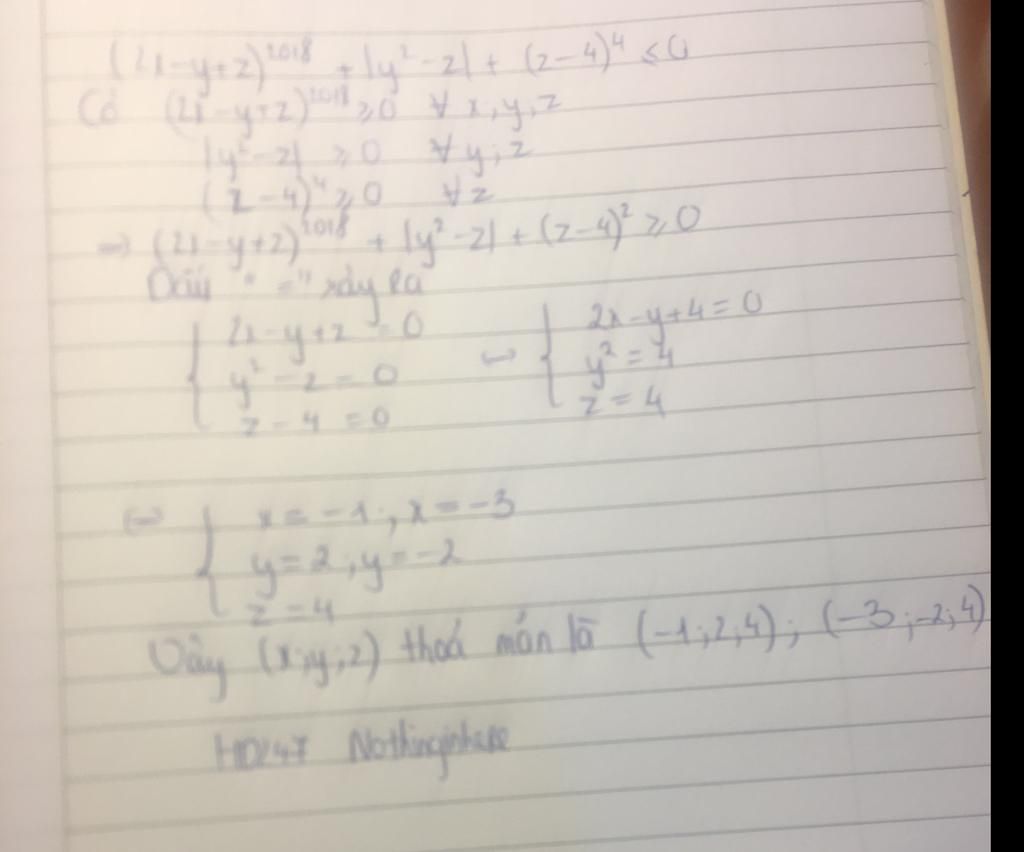 (2x-y+z)^2018 + |y²-z| + (z-4)⁴ ≤ 0
Có (2x-y+z)^2018 ≥0 ∀ x,y,z
|y²-z| ≥0 ∀ y,z
(z-4)⁴ ≥0 ∀z
=> (2x-y+z)^2018 + |y²-z| + (z-4)² ≥0
Dấu "=" xảy ra
{ 2x-y+z=0 <=> { 2x-y+4=0
y²-z=0 y²=4
z-4=0 z=4
<=> { x=-1, x=-3
y=2, y=-2
z=4
Vậy (x;y;z) thoả mãn là (-1;2;4); (-3;-2;4)
HD247 Nothinginhere